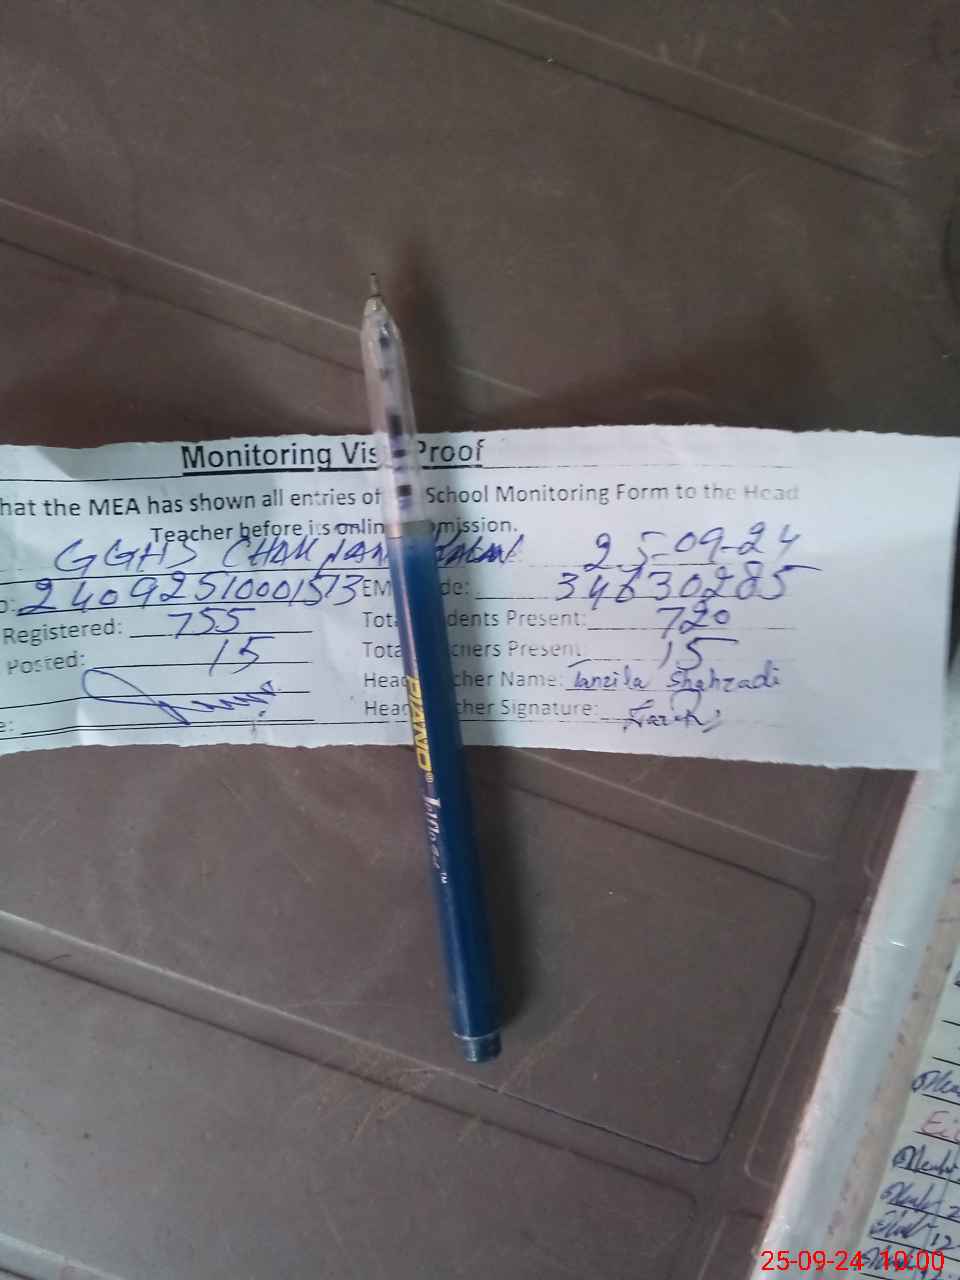 Monitoring Vis Proof
hat the MEA has shown all entries of School Monitoring Form to the Head
Teacher before its onlin mission.
GGHS CHAK 25-09-24
o: 24092510001513 EM de: 34630285
Registered: 755 Tot dents Present: 720
Posted: 15 Tota chers Present 15
Head cher Name: Tanzila Shahzadi
e: Head cher Signature:
PIANO
25-09-24 10:00